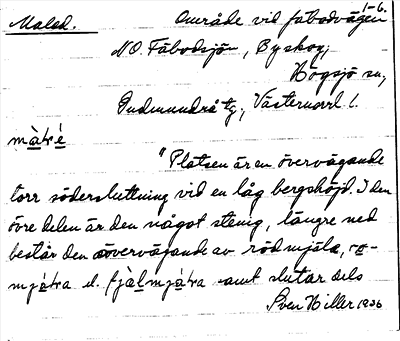 1-6.
Maled. Område vid fäbodvägen
N O. Fäbodsjön, Byskog,
Högsjö sn,
Gudmundrå tg, Västernorrl l.
màtré
"Platsen är en övervägande
torr södersluttning vid en låg bergshöjd. I den
övre delen är den något stenig, längre ned
består den övervägande av röd mjäla, rö-
mjä̀tra el. fjälmjä̀tra samt slutar dels
Sven Hiller 1936